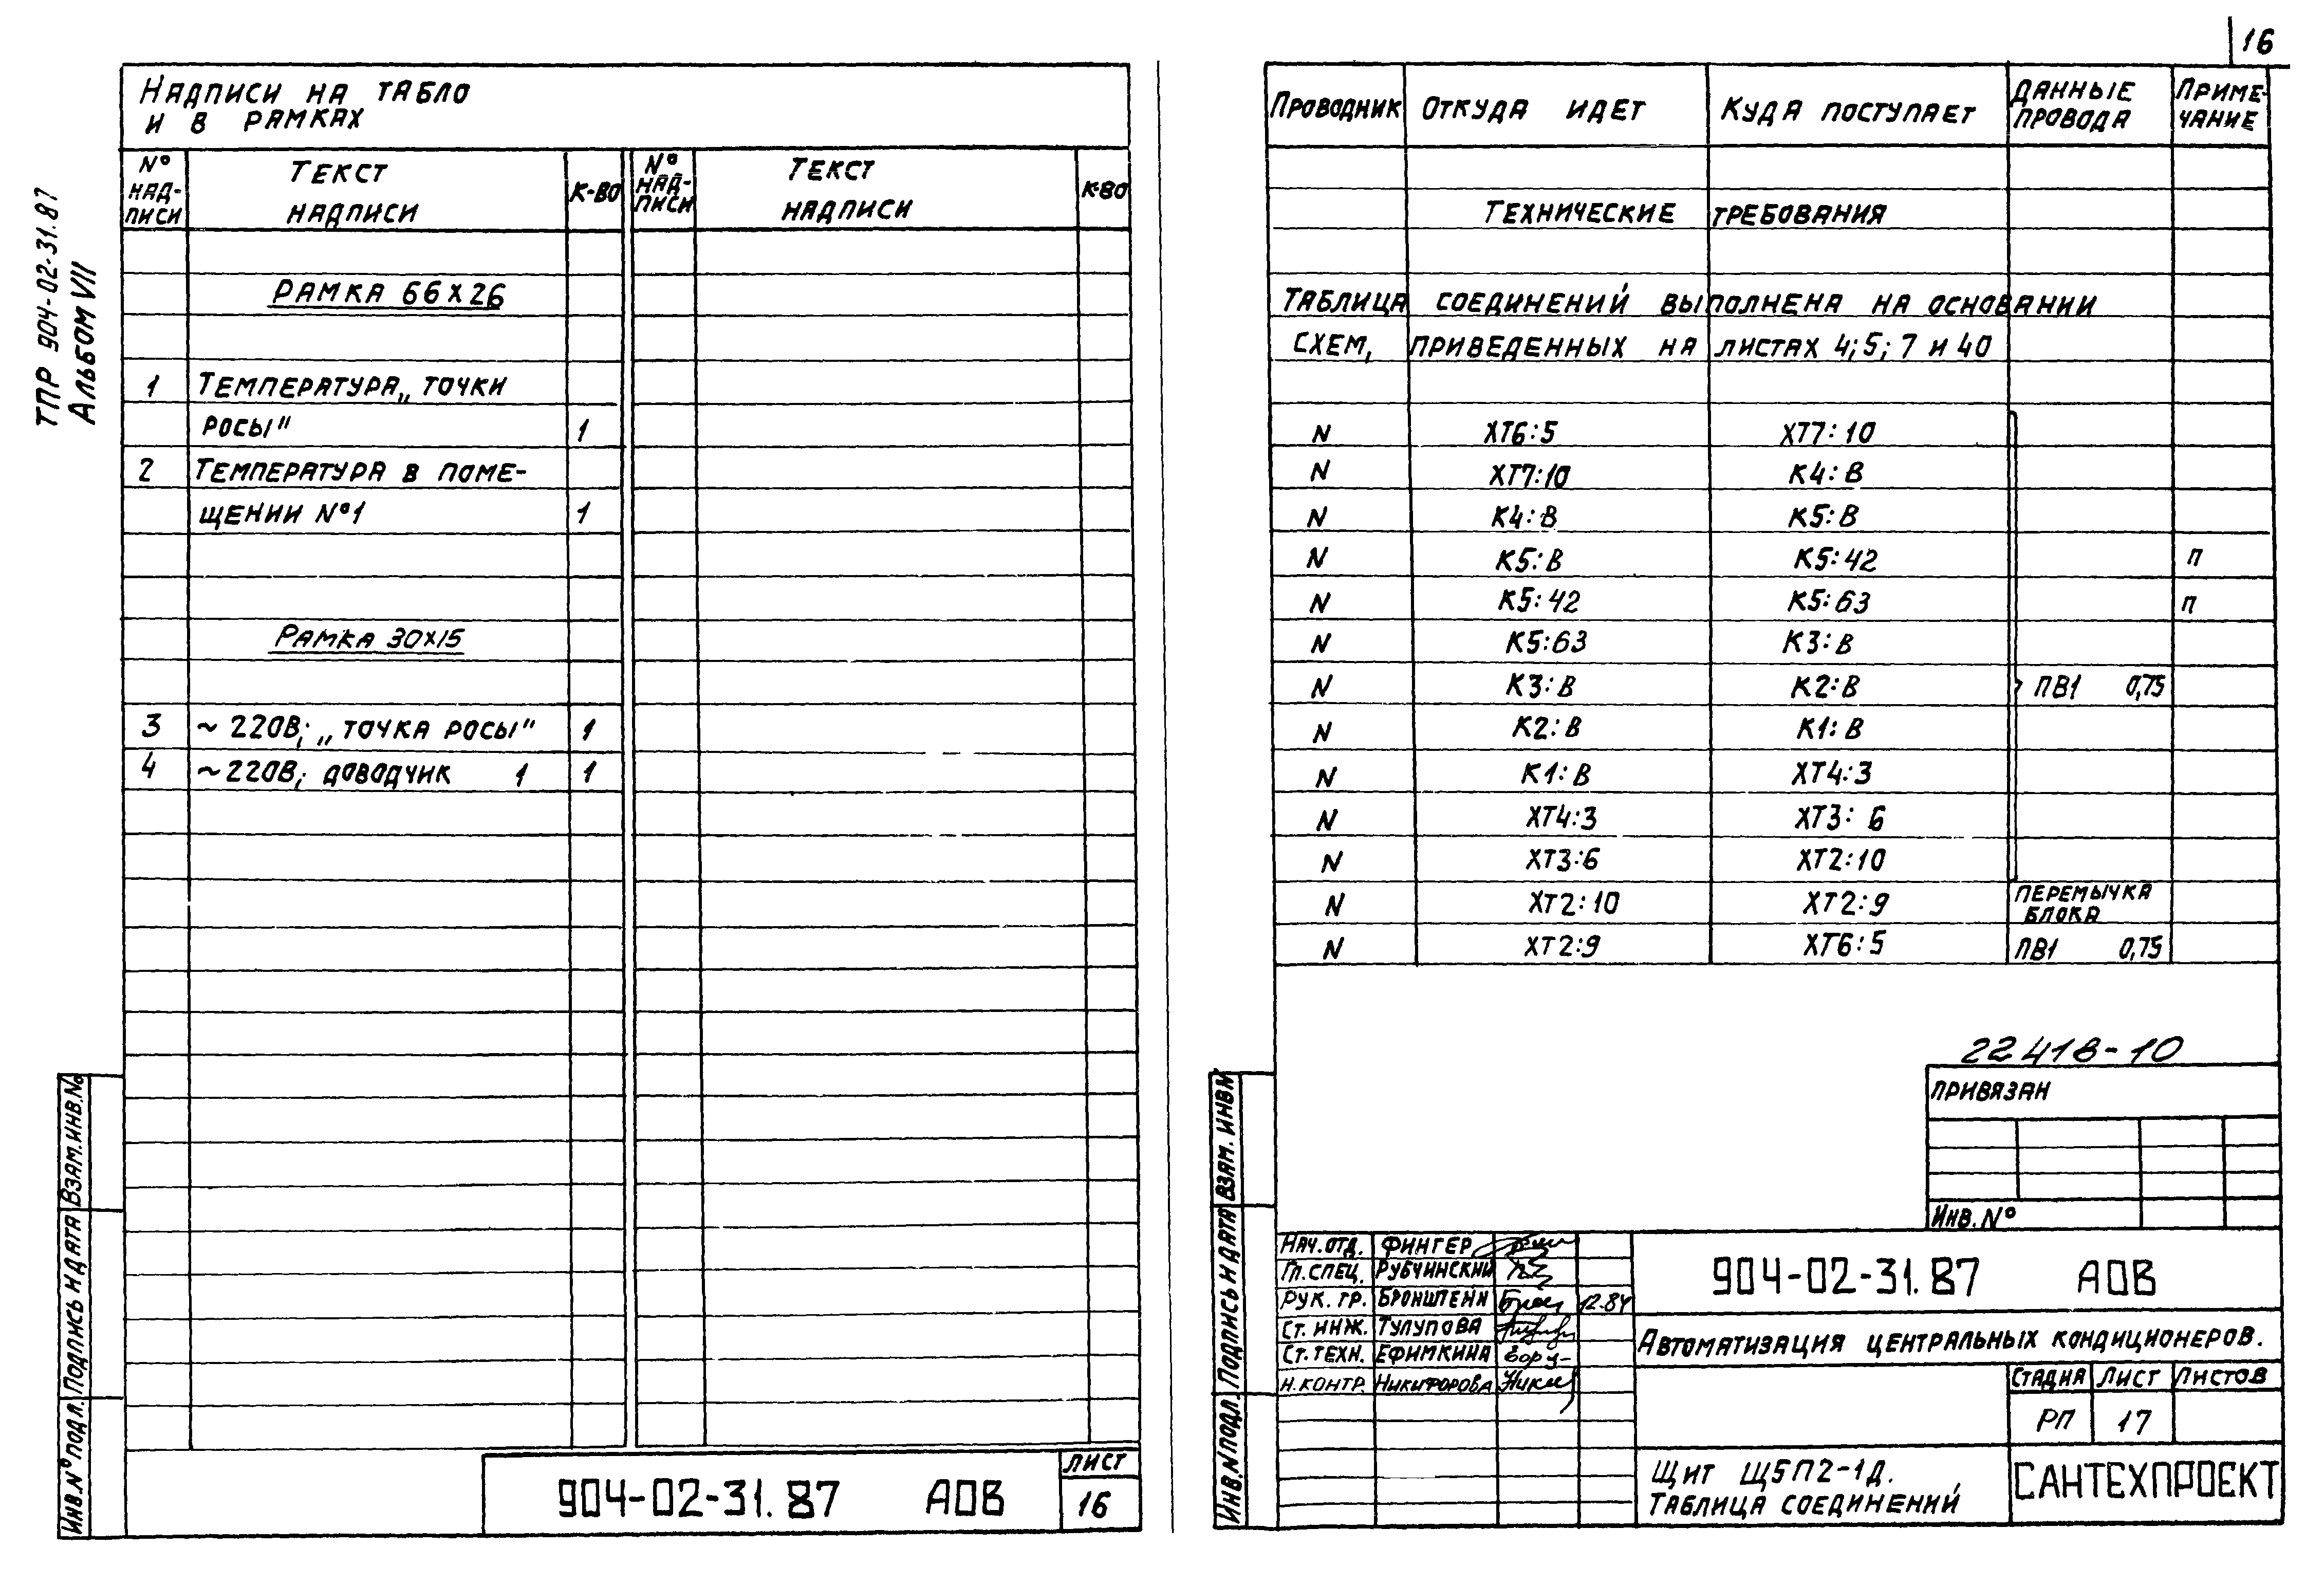 16
ТПР 904-02-31.87
Альбом VII
Надписи на табло
и в рамках
№ надписи Текст надписи к-во № надписи Текст надписи к-во
Рамка 66х26
1 Температура „точки
росы" 1
2 Температура в поме-
щении №1 1
Рамка 30х15
3 ~220В; „точка росы" 1
4 ~220В; доводчик 1 1
Взам. инв. №
Подпись и дата
Инв. № подл.
904-02-31.87 АОВ
Лист
16
Проводник Откуда идет Куда поступает Данные провода Приме-чание
Технические требования
Таблица соединений выполнена на основании
схем, приведенных на листах 4; 5; 7 и 40
N ХТ6:5 ХТ7:10
N ХТ7:10 К4:В
N К4:В К5:В
N К5:В К5:42 п
N К5:42 К5:63 п
N К5:63 К3:В
N К3:В К2:В ПВ1 0,75
N К2:В К1:В
N К1:В ХТ4:3
N ХТ4:3 ХТ3:6
N ХТ3:6 ХТ2:10
N ХТ2:10 ХТ2:9 Перемычка блока
N ХТ2:9 ХТ6:5 ПВ1 0,75
22418-10
Привязан
Инв. №
Взам. инв. №
Подпись и дата
Инв. № подл.
Нач. отд. Фингер
Гл. спец. Рубчинский
Рук. гр. Бронштейн 12.87
Ст. инж. Тулупова
Ст. техн. Ефимкина
Н. контр. Никифорова
904-02-31.87 АОВ
Автоматизация центральных кондиционеров.
Стадия Лист Листов
РП 17
Щит Щ5П2-1Д.
Таблица соединений
САНТЕХПРОЕКТ